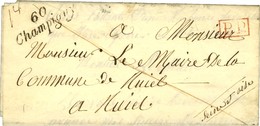 60
Champigny
P.P.
à Monsieur
Monsieur Le Maire de la
Commune de Rueil
à Rueil
Seine et Oise